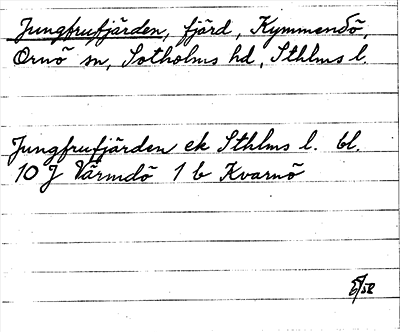 Jungfrufjärden, fjärd, Kymmendö,
Ornö sn, Sotholms hd, Sthlms l.
Jungfrufjärden ek Sthlms l. bl.
10 J Värmdö 1 b Kvarnö